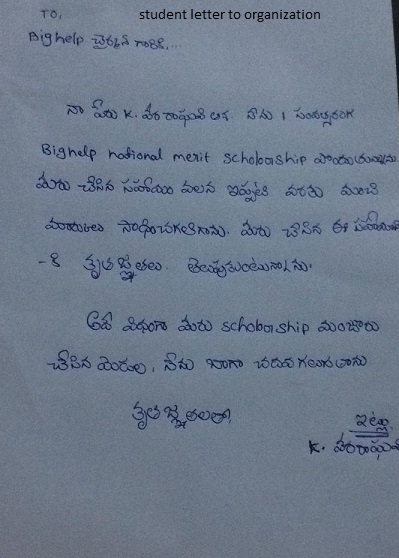 student letter to organization
TO,
Bighelp చైర్మన్ గారికి,...
నా పేరు K. వీర రాఘవ నేను 1 సంవత్సరంగా
Bighelp national merit scholarship పొందుతున్నాను
మీరు చేసిన సహాయం వలన ఇప్పటి వరకు మంచి
మార్కులు సాధించగలిగాను. మీరు చేసిన ఈ సహాయాని
-కి కృతజ్ఞతలు తెలుపుకుంటున్నాను.
అదే విధంగా మీరు scholarship మంజూరు
చేసిన యెడల, నేను బాగా చదువగలుగుతాను
కృతజ్ఞతలతో,
ఇట్లు,
K. వీరరాఘవ